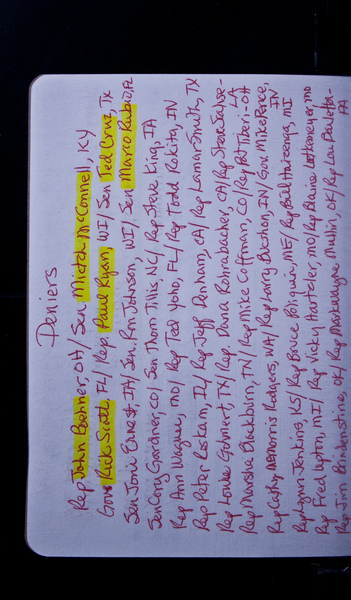 Deniers
Rep John Boehner, OH/ Sen Mitch McConnell, KY
Gov Rick Scott, FL/ Rep. Paul Ryan, WI/ Sen Ted Cruz, TX
Sen Joni Ernst, IA/ Sen. Ron Johnson, WI/ Sen Marco Rubio, FL
Sen Cory Gardner, CO/ Sen Thom Tillis, NC/ Rep Steve King, IA
Rep Ann Wagner, MO/ Rep Ted Yoho, FL/ Rep Todd Rokita, IN
Rep Peter Roskam, IL/ Rep Jeff Denham, CA/ Rep Lamar Smith, TX
Rep Louie Gohmert, TX/ Rep. Dana Rohrabacher, CA/ Rep Steve Scalise-LA
Rep Marsha Blackburn, TN/ Rep Mike Coffman, CO/ Rep Pat Tiberi-OH
Rep Cathy McMorris Rodgers, WA/ Rep Larry Bucshon, IN/ Gov Mike Pence, IN
Rep Lynn Jenkins, KS/ Rep Bruce Poliquin, ME/ Rep Bill Huizenga, MI
Rep Fred Upton, MI/ Rep Vicky Hartzler, MO/ Rep Blaine Luetkemeyer, MO
Rep Jim Bridenstine, OK/ Rep Markwayne Mullin, OK/ Rep Lou Barletta-PA